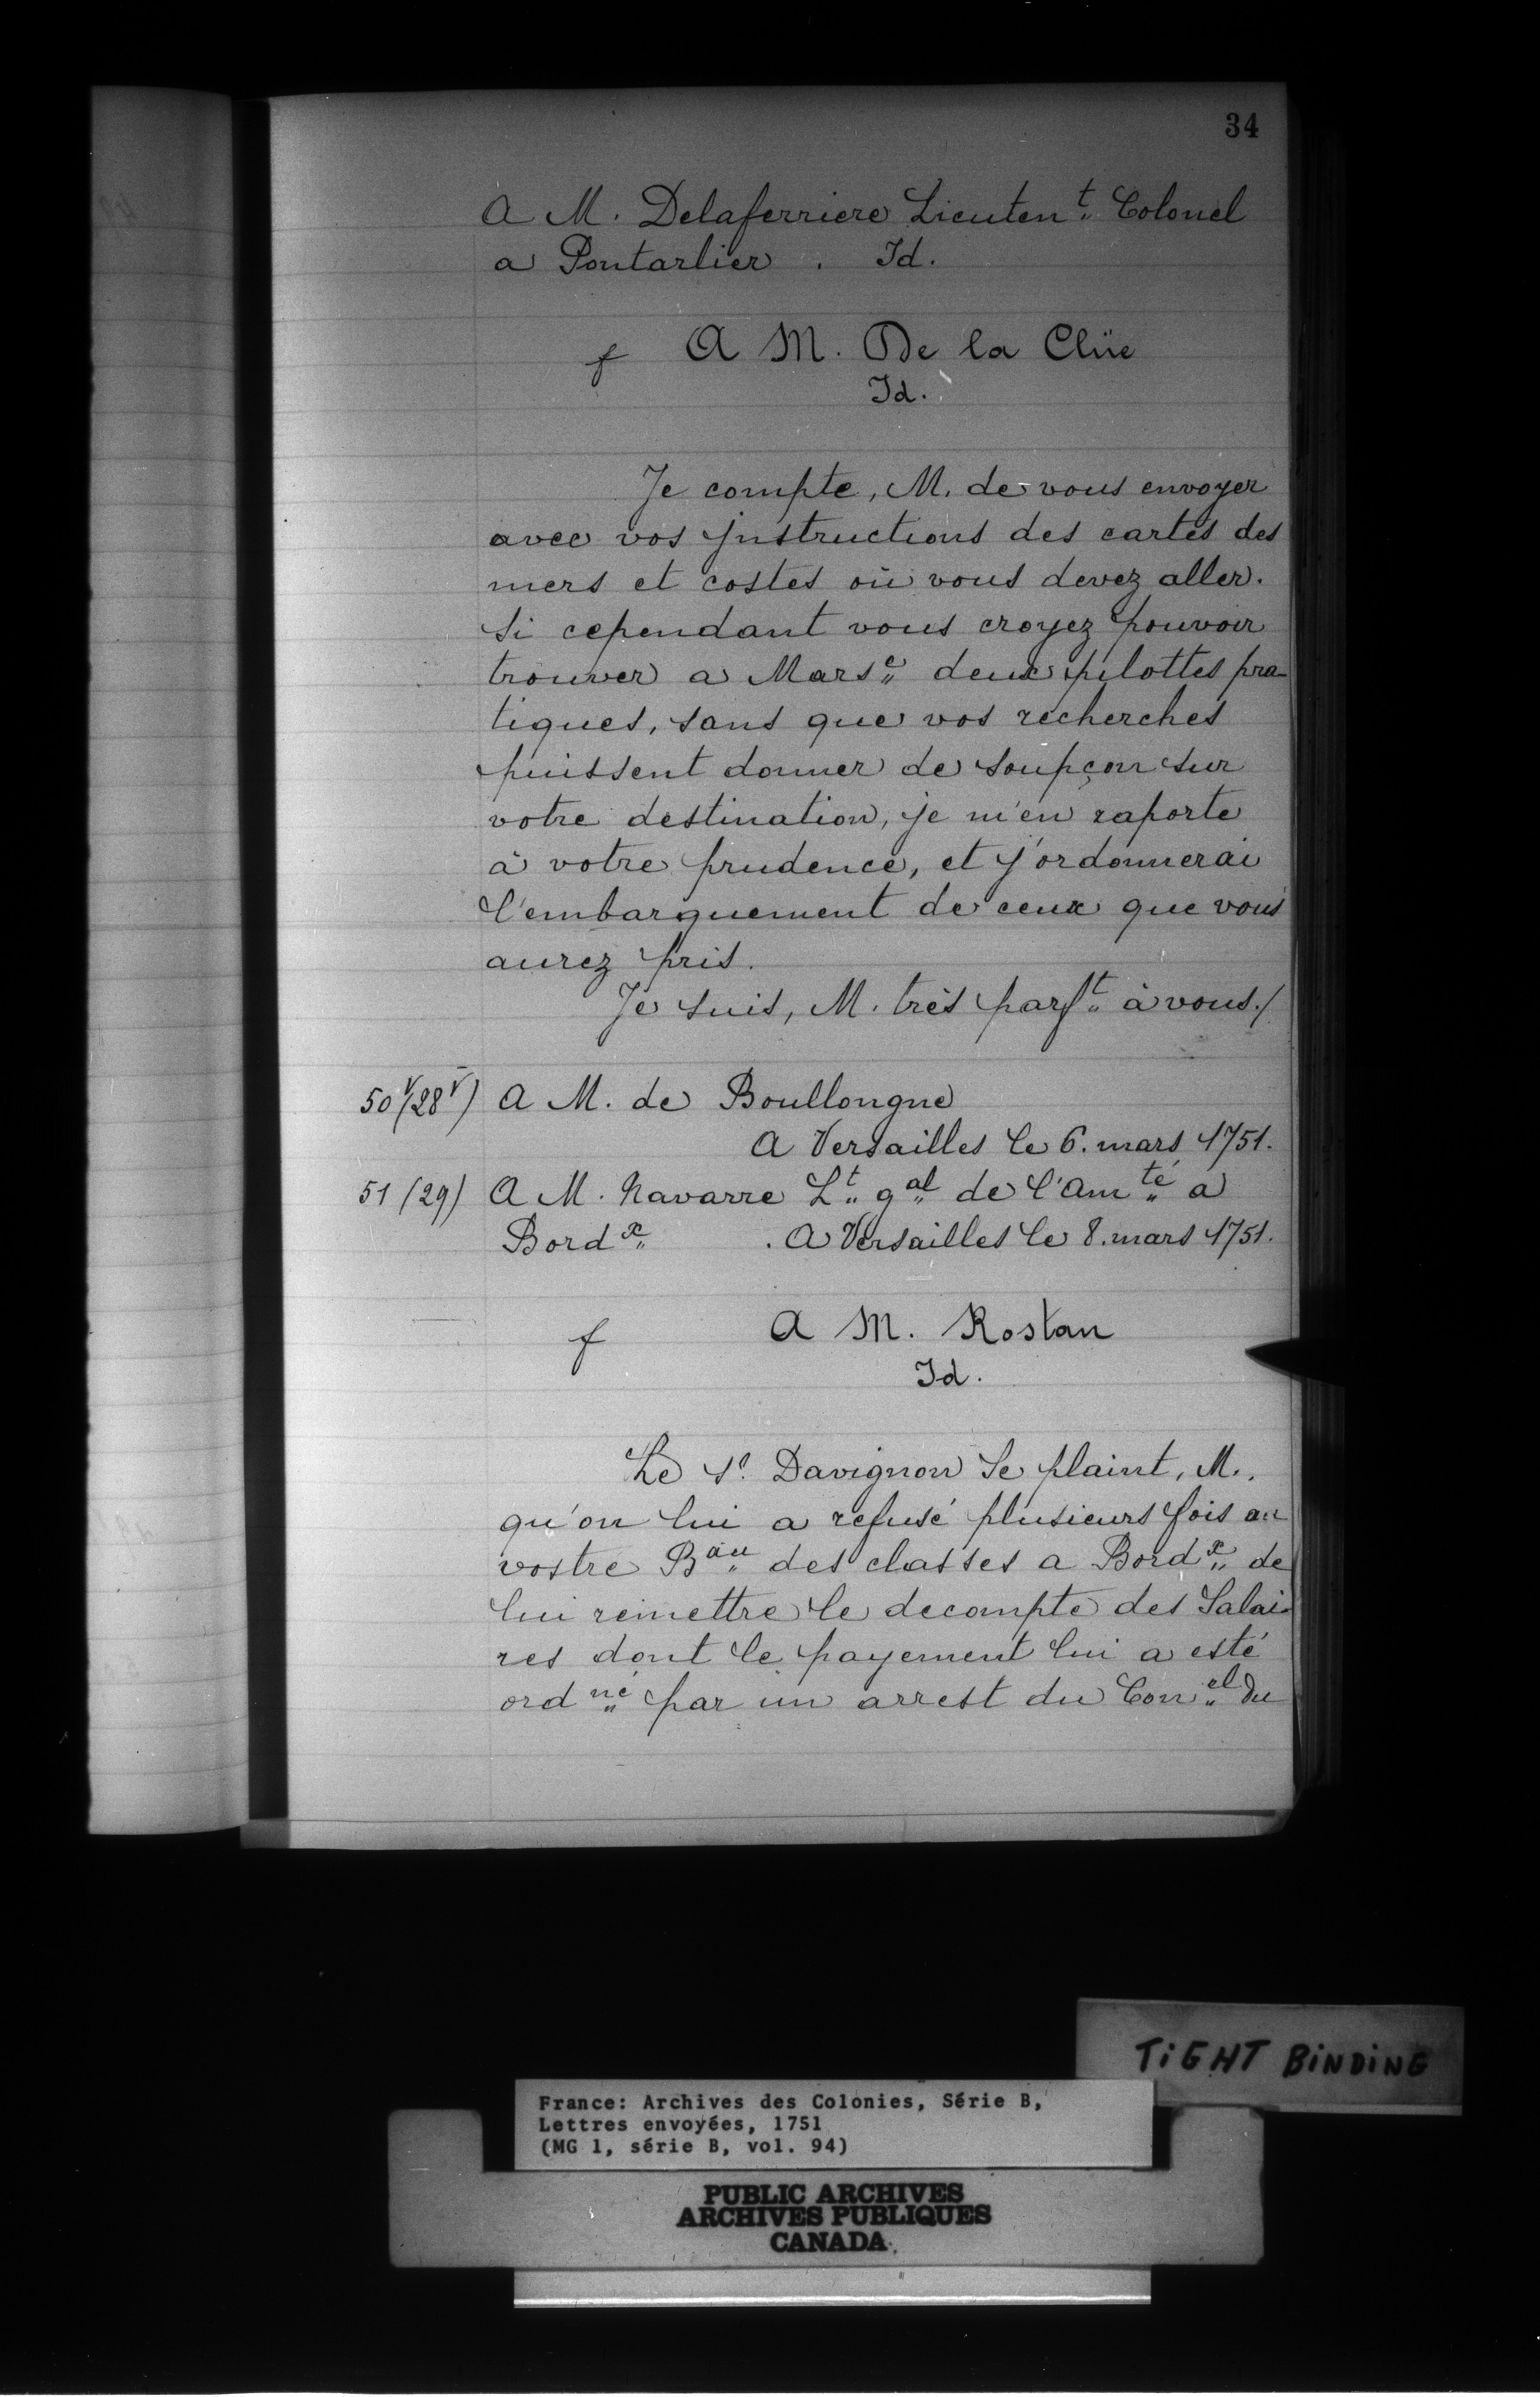 34
A M. Delaferriere Lieuten.t Colonel
a Pontarlier . Id.
f A M. De la Clüe
Id.
Je compte, M. de vous envoyer
avec vos jnstructions des cartes des
mers et costes où vous devez aller.
Si cependant vous croyez pouvoir
trouver a Mars.e deux pilottes pra-
tiques, sans que vos recherches
puissent donner de soupçon sur
votre destination, je m'en raporte
à votre prudence, et j'ordonnerai
l'embarquement de ceux que vous
aurez pris.
Je suis, M. très parft à vous./
50v(28v) A M. de Boullongne
A Versailles le 6. mars 1751.
51 (29) A M. Navarre Lt gal de l'Amté a
Bordx . A Versailles le 8. mars 1751.
f A M. Rostan
Id.
Le Sr. Davignon Se plaint, M.,
qu'on lui a refusé plusieurs fois au
vostre Bau des classes a Bordx de
lui remettre le decompte des Salai-
res dont le payement lui a esté
ordné par un arrest du Conel du
TIGHT BINDING
France: Archives des Colonies, Série B,
Lettres envoyées, 1751
(MG 1, série B, vol. 94)
PUBLIC ARCHIVES
ARCHIVES PUBLIQUES
CANADA